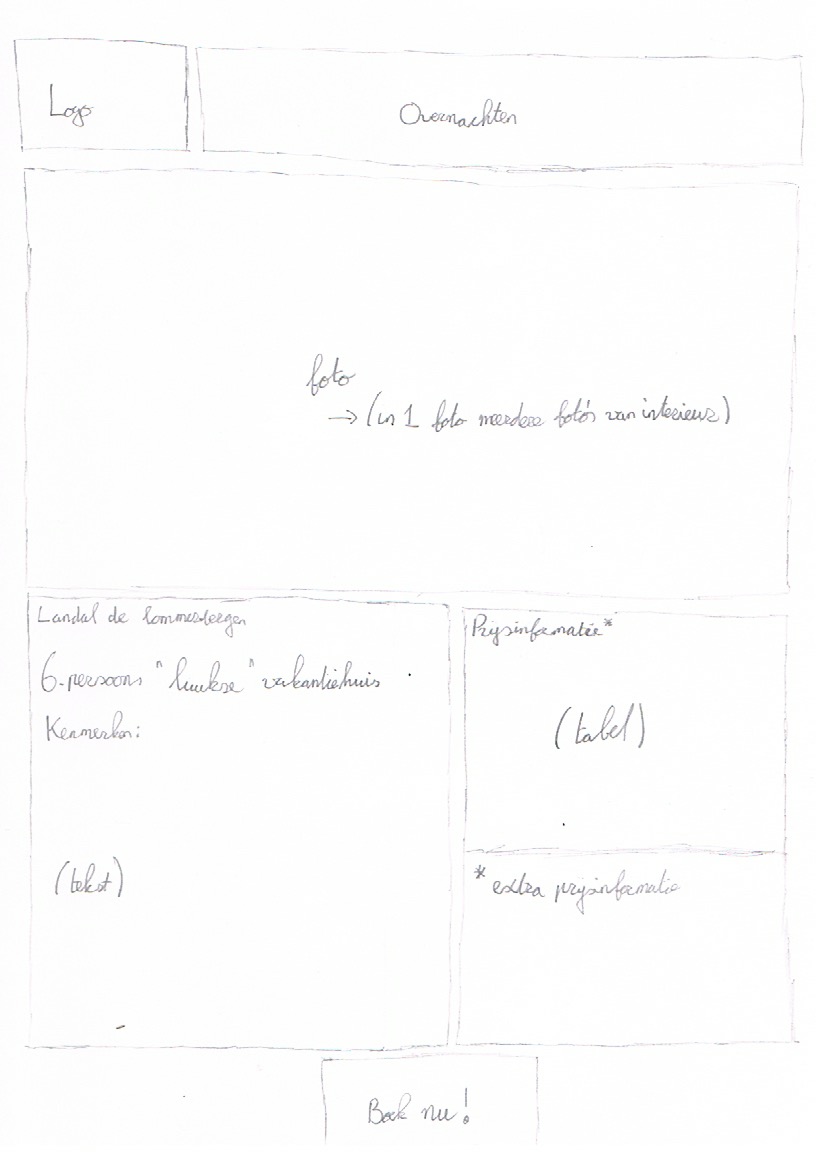 Logo
Overnachten
foto
→ (in 1 foto meerdere foto's van interieur)
Landal de Lommerbergen
6-persoons "luukse" vakantiehuis
Kenmerken:
(tekst)
Prijsinformatie*
(tabel)
* extra prijsinformatie
Boek nu!